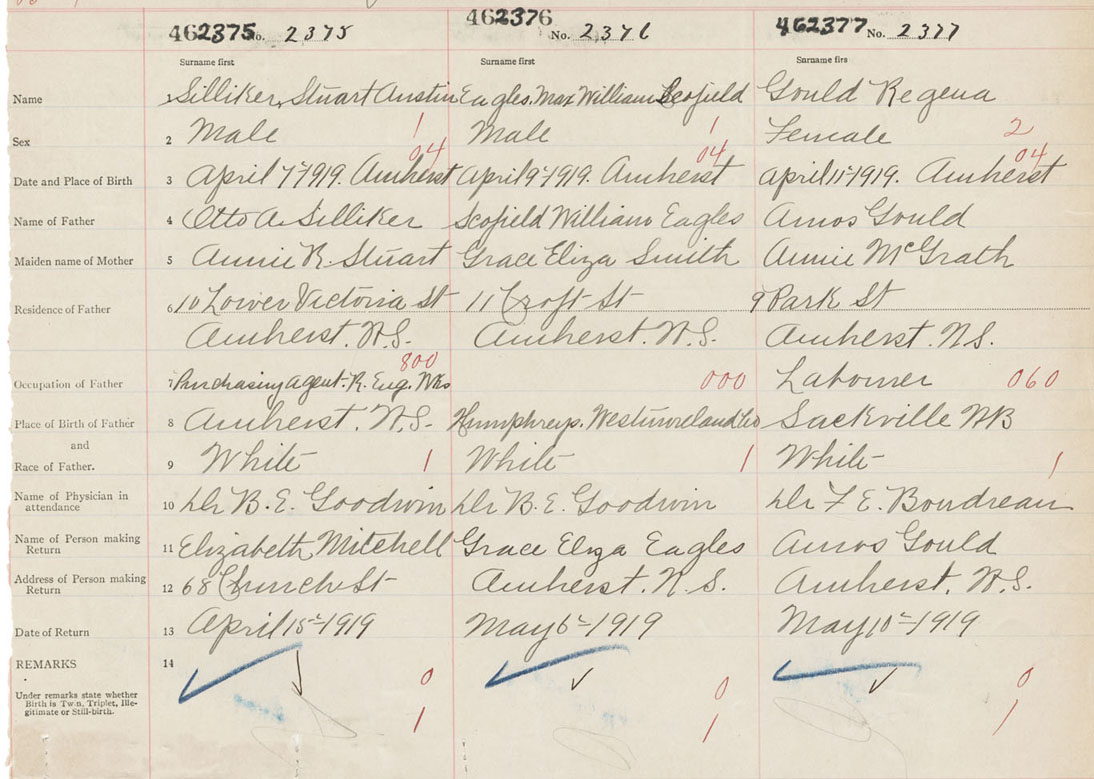 462375 No. 2375 462376 No. 2376 462377 No. 2377
Surname first Surname first Surname firs
Name Silliker, Stuart Austin Eagles, Max William Scofield Gould Regena
Sex 2 Male 1 Male 1 Female 2
04 04 04
Date and Place of Birth 3 April 7th 1919. Amherst April 9th 1919. Amherst April 11th 1919. Amherst
Name of Father 4 Otto A. Silliker Scofield William Eagles Amos Gould
Maiden name of Mother 5 Annie R. Stuart Grace Eliza Smith Annie McGrath
Residence of Father 6 10 Lower Victoria St 11 Croft St 9 Park St
Amherst. N.S. Amherst. N.S. Amherst. N.S.
800
Occupation of Father 7 Purchasing agent. R. Eng. Wks 000 Labourer 060
Place of Birth of Father 8 Amherst. N.S. Humphreys. Westmoreland Co Sackville NB
and
Race of Father. 9 White 1 White 1 White 1
Name of Physician in
attendance 10 Dr B. E. Goodwin Dr B. E. Goodwin Dr F E. Boudreau
Name of Person making
Return 11 Elizabeth Mitchell Grace Eliza Eagles Amos Gould
Address of Person making
Return 12 68 Church St Amherst. N.S. Amherst. N.S.
Date of Return 13 April 15th 1919 May 6th 1919 May 10th 1919
REMARKS 14
0 0 0
Under remarks state whether
Birth is Twin, Triplet, Ille-
gitimate or Still-birth.
1 1 1